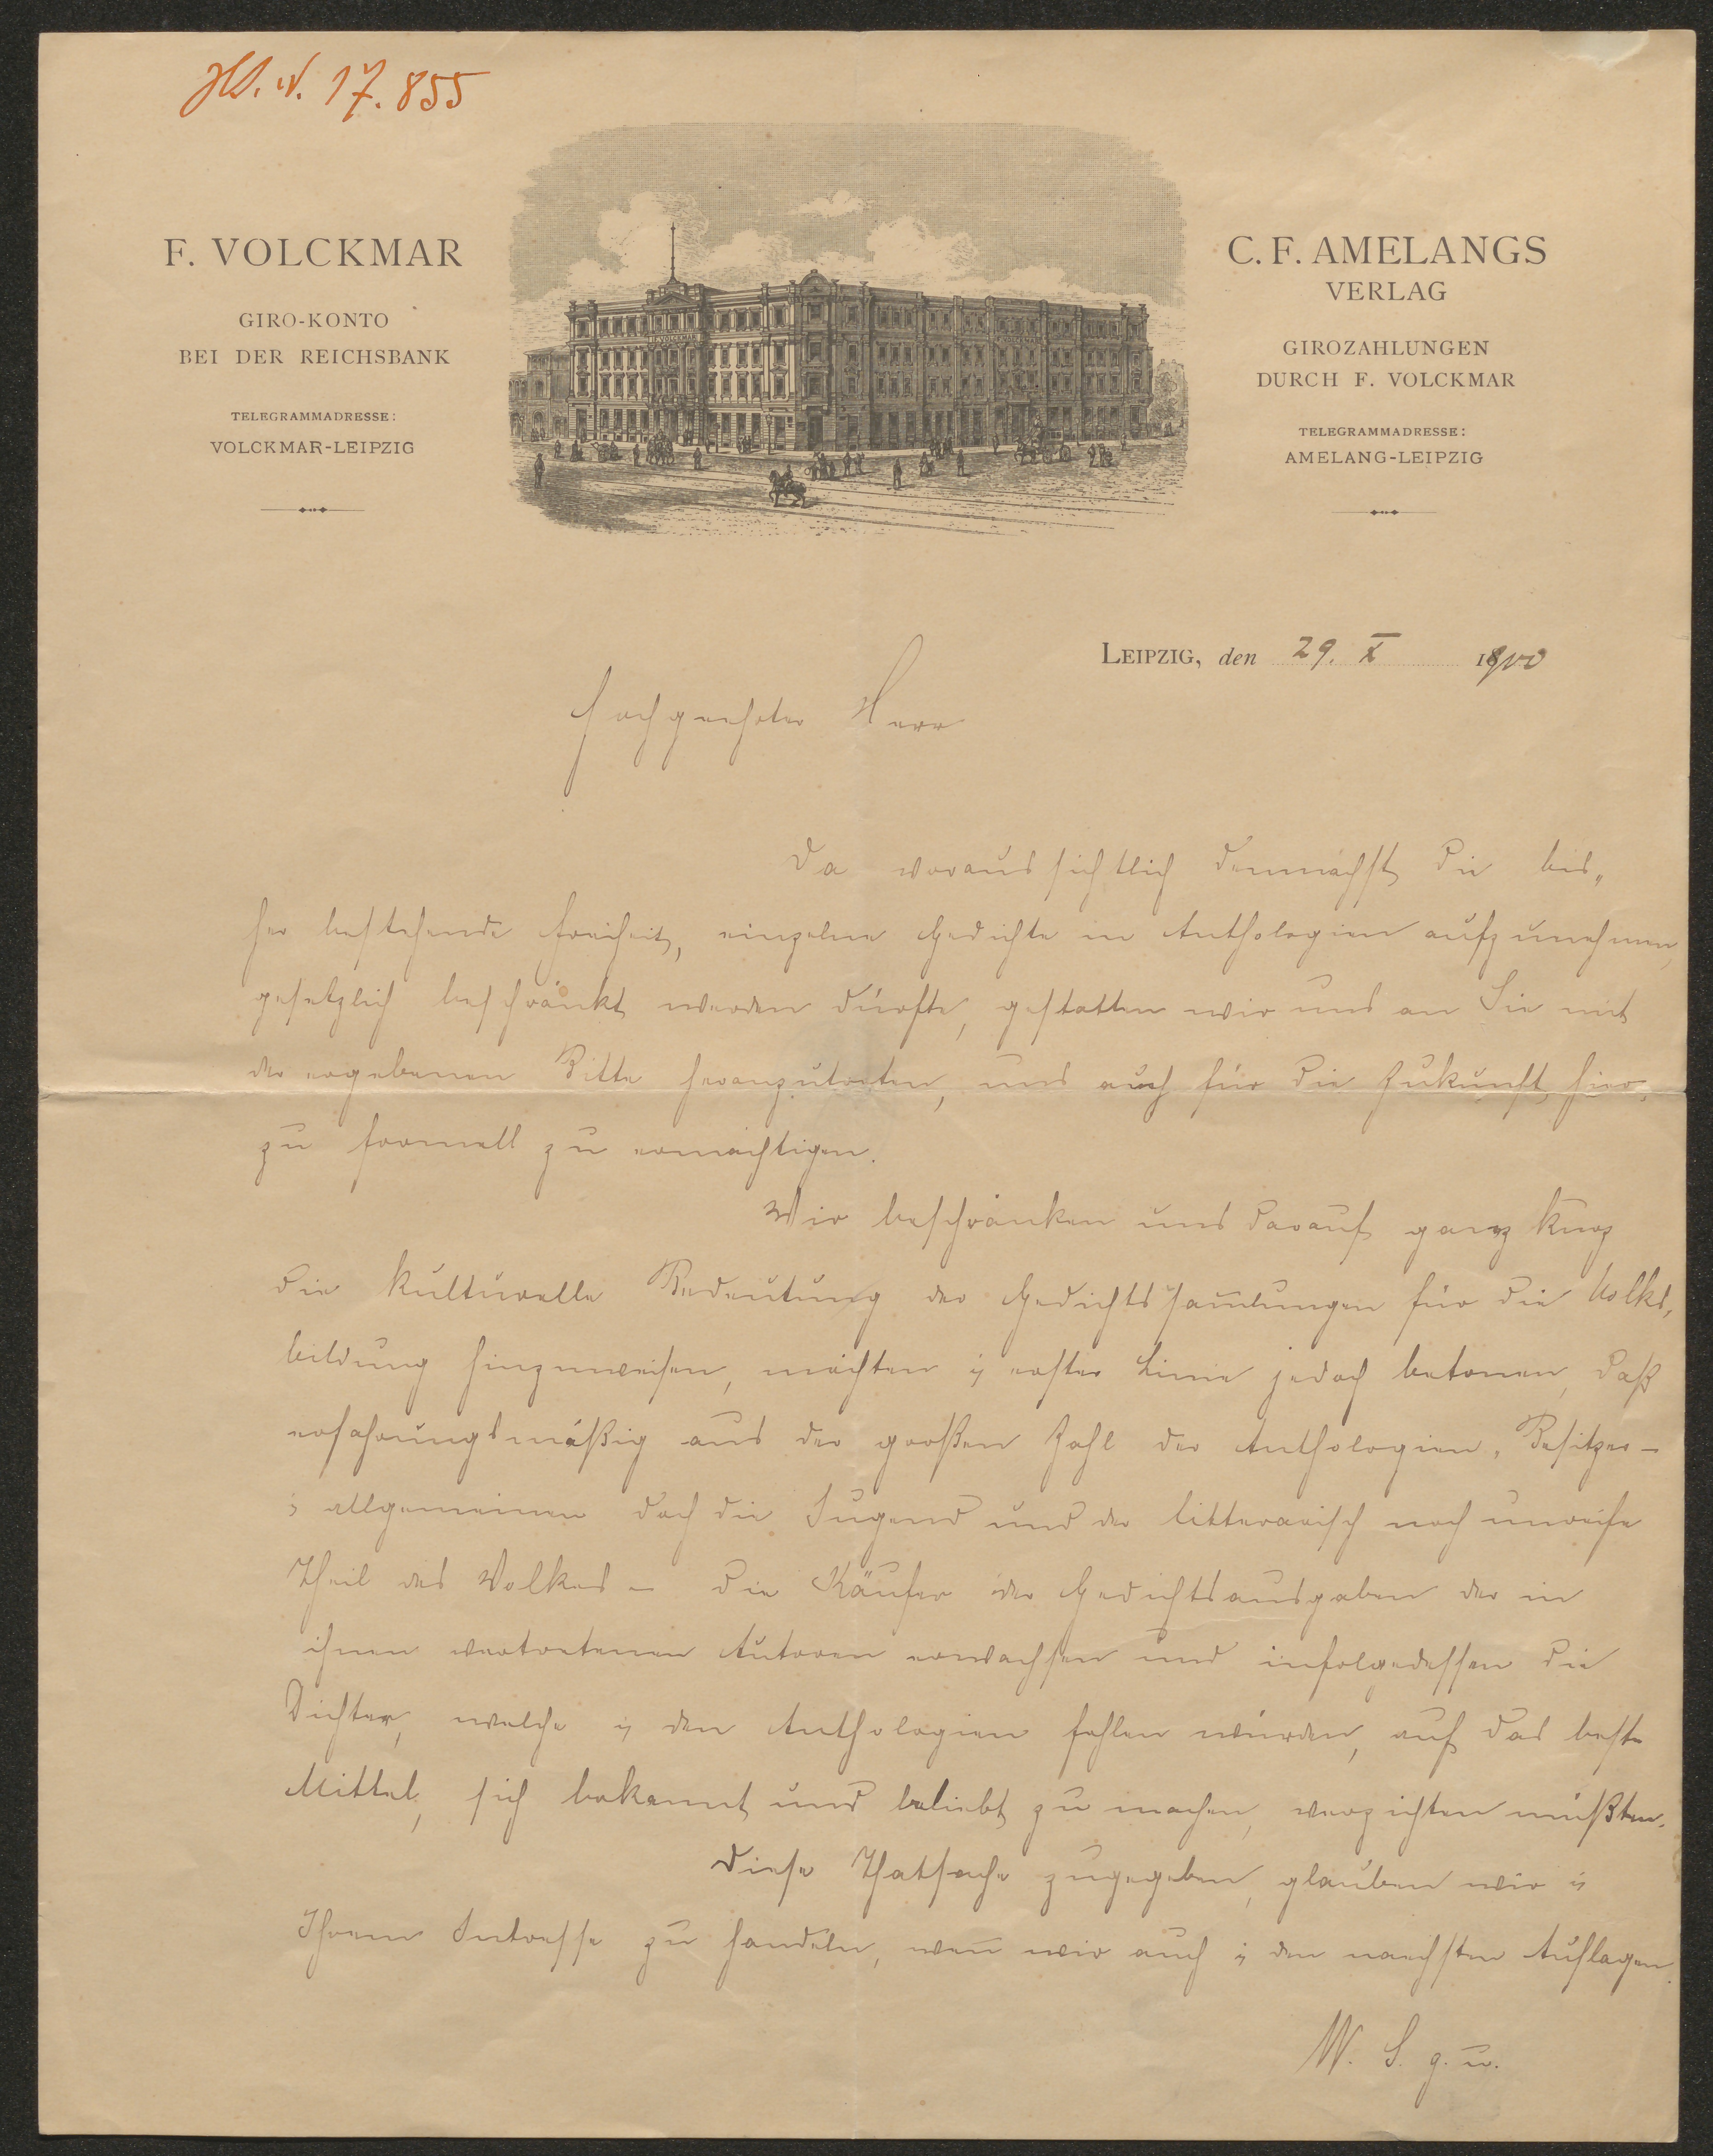 17.855
F. VOLCKMAR
GIRO-KONTO
BEI DER REICHSBANK
TELEGRAMMADRESSE:
VOLCKMAR-LEIPZIG
F. VOLCKMAR
C. F. AMELANGS
VERLAG
GIROZAHLUNGEN
DURCH F. VOLCKMAR
TELEGRAMMADRESSE:
AMELANG-LEIPZIG
LEIPZIG, den 29. X 1900
Hochgeehrter Herr
Da voraussichtlich demnächst die bis„
her bestehende Freiheit, einzelne Gedichte in Anthologien aufzunehmen,
gesetzlich beschränkt werden dürfte, gestatten wir uns an Sie mit
der ergebenen Bitte heranzutreten, uns auch für die Zukunft hier„
zu formell zu ermächtigen.
Wir beschränken uns darauf ganz kurz
die kulturelle Bedeutung der Gedichtssam̅lungen für die Volks„
bildung hinzuweisen, möchten in erster Linie jedoch betonen, daß
erfahrungsmäßig aus der großen Zahl der Anthologien, Besitzer –
i allgemeinen doch die Jugend und der litterarisch noch unreife
Theil des Volkes – die Käufer der Gedichtsausgaben der in
ihnen vertretenen Autoren erwachsen und infolgedessen die
Dichter, welche in den Anthologien fehlen würden, auf das beste
Mittel, sich bekannt und beliebt zu machen, verzichten müßten.
Diese Thatsache zugegeben, glauben wir in
Ihrem Intresse zu handeln, wen̅ wir auch in den naechsten Auflagen
W. S. g. u.